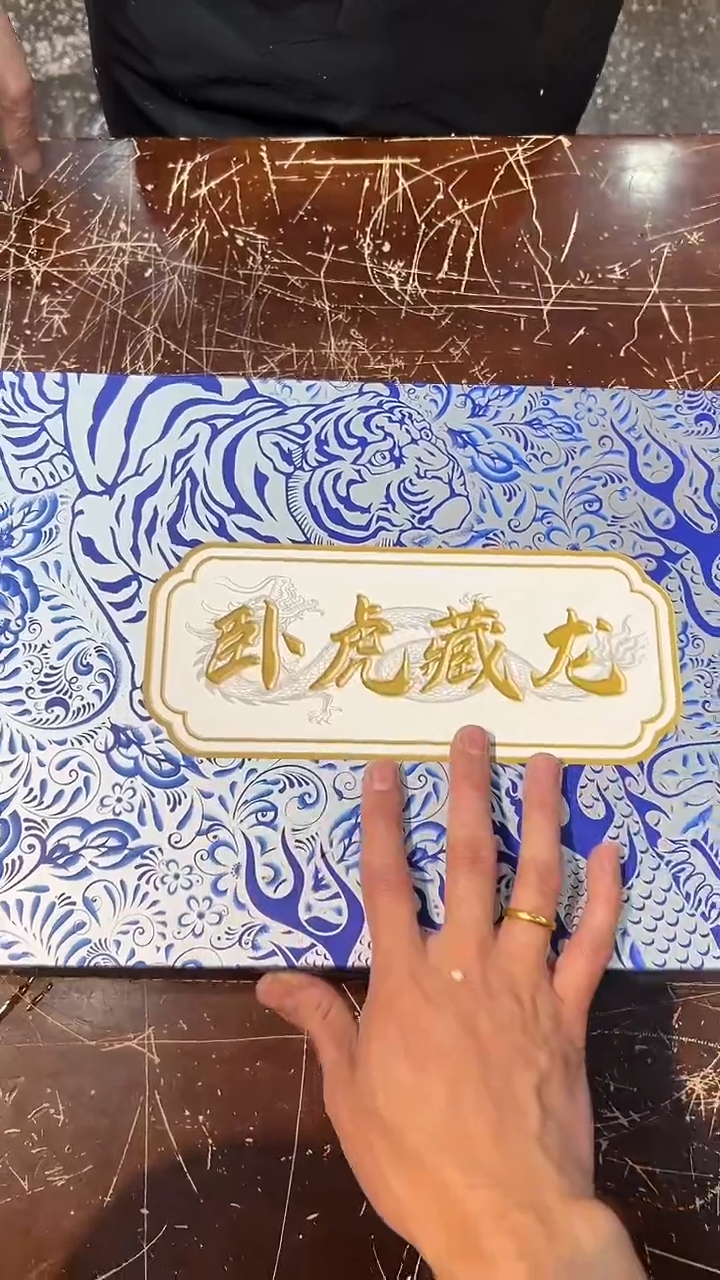 卧虎藏龙